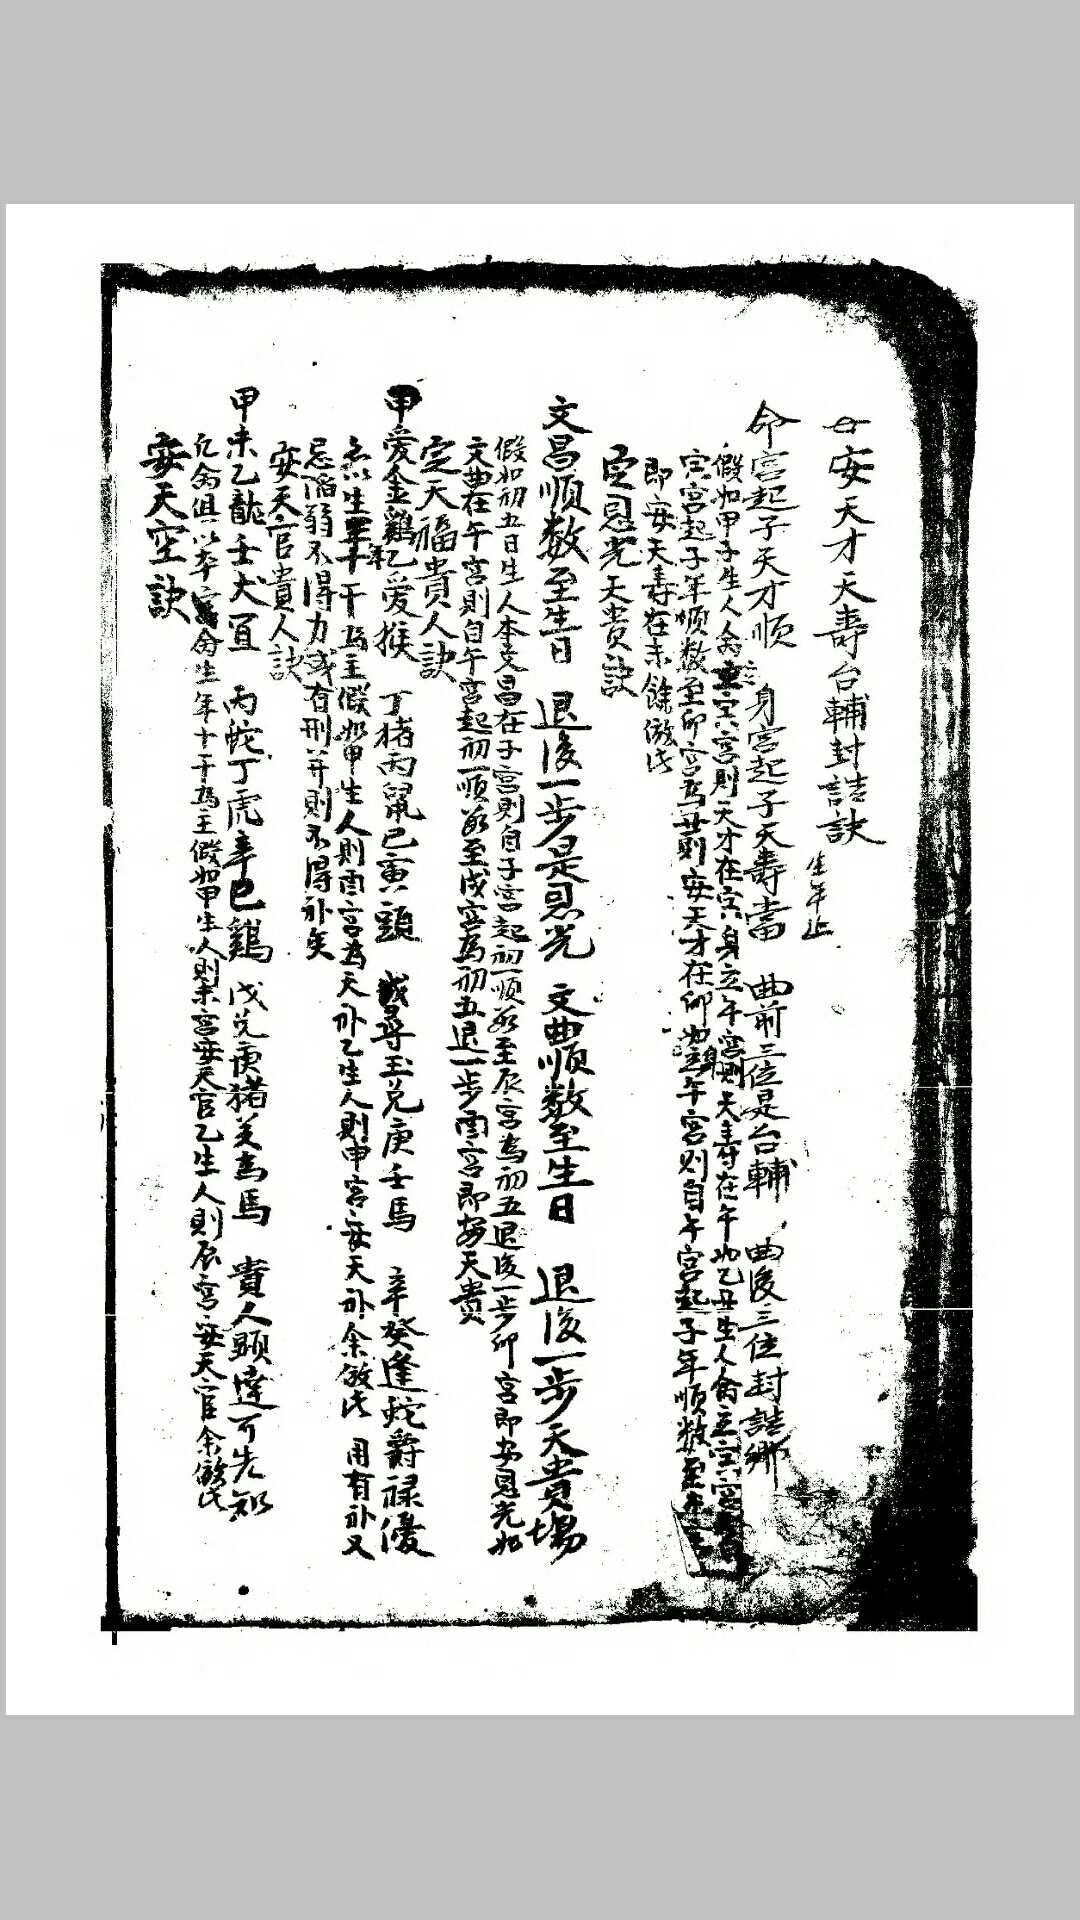 安天才天壽台輔封誥訣
生年止
命宮起子天才順 身宮起子天壽當 曲前三位是台輔 曲後三位封誥鄉
假如甲子生人命立寅宮則天才在寅身立午宮則天壽在午如乙丑生人命立寅宮
寅宮起子年順数至卯宮為丑則安天才在卯如身立午宮則自午宮起子年順数至未宮
即安天壽在未餘倣此
定恩光天貴訣
文昌順数至生日 退後一步是恩光 文曲順数至生日 退後一步天貴場
假如初五日生人本文昌在子宮則自子宮起初一順数至辰宮為初五退後一步卯宮即安恩光如
文曲在午宮則自午宮起初一順数至戌宮為初五退一步酉宮即安天貴
定天福貴人訣
甲愛金雞乙愛猴 丁猪丙鼠己寅頭 戊尋玉兔庚壬馬 辛癸逢蛇爵禄優
以生年干為主假如甲生人則酉宮為天福乙生人則申宮安天福余倣此 用有福又
忌陷弱不得力或有刑并則不得福矣
安天官貴人訣
甲未乙龍壬犬宜 丙蛇丁虎辛己雞 戊兔庚猪癸為馬 貴人顯達可先知
凡命俱以本命生年十干為主假如甲生人則未宮安天官乙生人則辰宮安天官余倣此
安天空訣